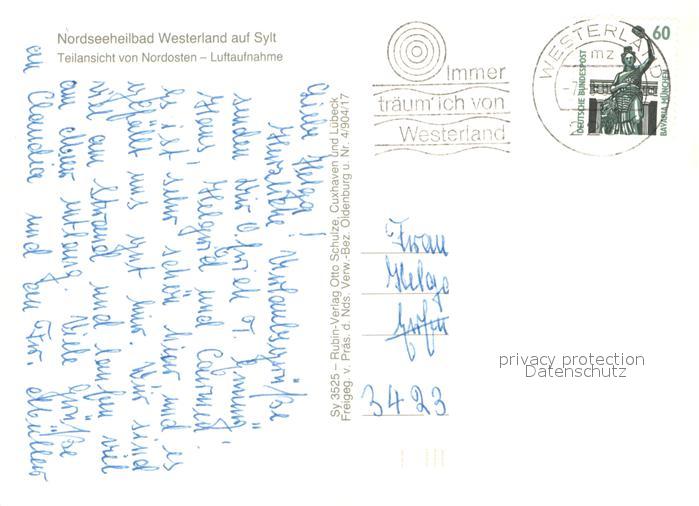 Nordseeheilbad Westerland auf Sylt
Teilansicht von Nordosten – Luftaufnahme
Immer
träum' ich von
Westerland
WESTERLAND
mz
60
DEUTSCHE BUNDESPOST
BAVARIA MÜNCHEN
Sy 3525 – Rubin-Verlag Otto Schulze, Cuxhaven und Lübeck
Freigeg. v. Präs. d. Nds. Verw.-Bez. Oldenburg u. Nr. 4/904/17
Liebe Helga!
Herzliche Urlaubsgrüße
senden Dir
Haus und
es ist sehr schön hier und es
gefällt uns gut hier. Wir sind
viel am Strand und laufen viel
am Meer entlang. Viele Grüße
an Claudia und
Frau
Helga
3423
privacy protection
Datenschutz